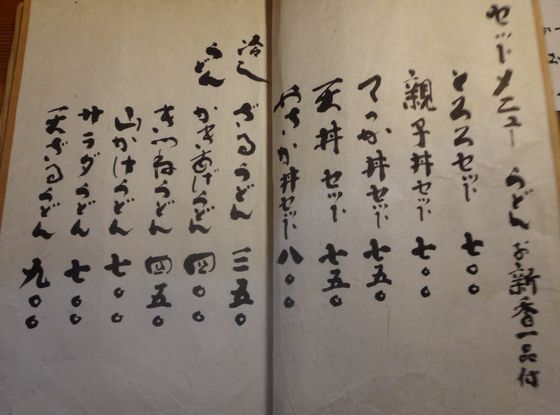 セットメニュー うどん お新香 一品付
とろろセット 七〇〇
親子丼セット 七〇〇
てっか丼セット 七五〇
天丼セット 七五〇
丼セット 八〇〇
冷し
うどん
ざるうどん 三五〇
かきあげうどん 四〇〇
きつねうどん 四五〇
山かけうどん 七〇〇
サラダうどん 七〇〇
天ざるうどん 九〇〇